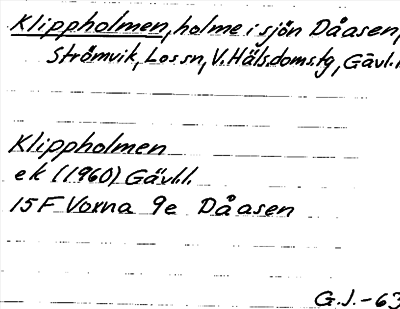 Klippholmen, holme i sjön Dåasen,
Strömvik, Los sn, V. Hälsdomstg, Gävl.l
Klippholmen
ek (1960) Gävl.l.
15F Voxna 9e Dåasen
G.J.-63